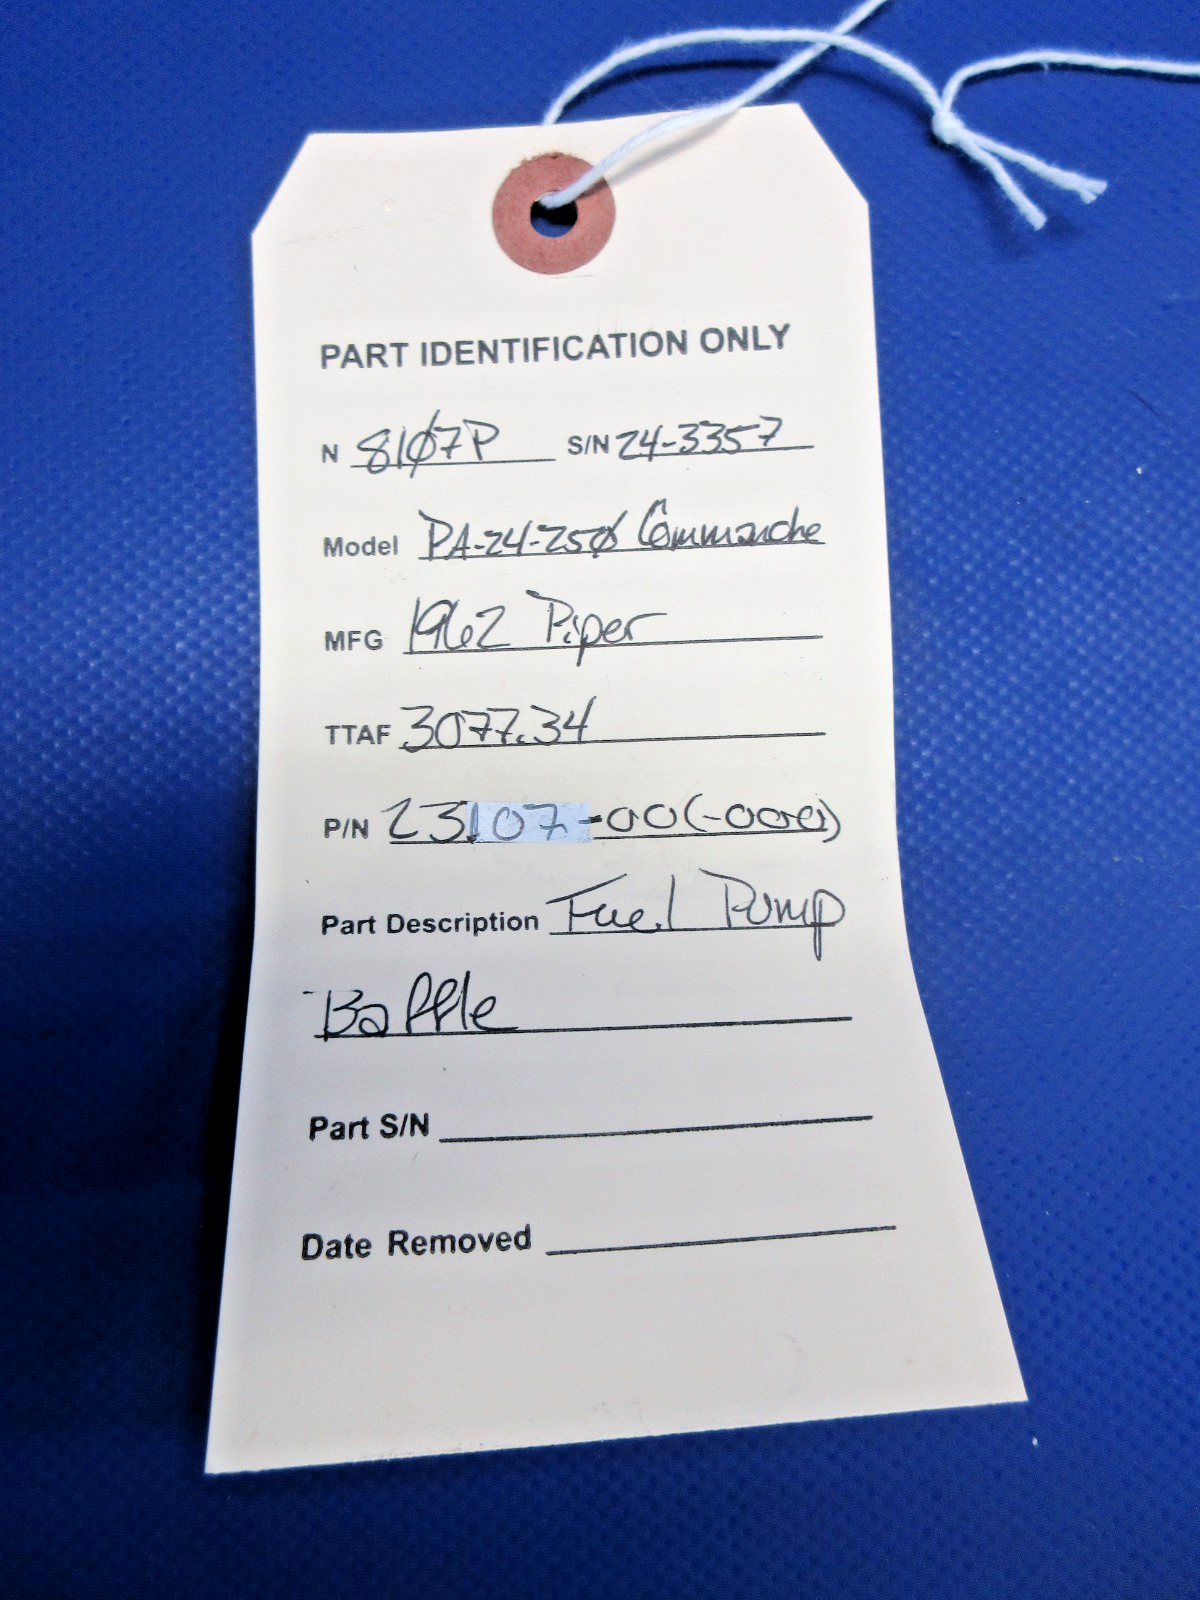 PART IDENTIFICATION ONLY
N 81Ø7P S/N 24-3357
Model PA-24-25Ø Commanche
MFG 1962 Piper
TTAF 3077.34
P/N 23107-00(-000)
Part Description Fuel Pump
Baffle
Part S/N
Date Removed